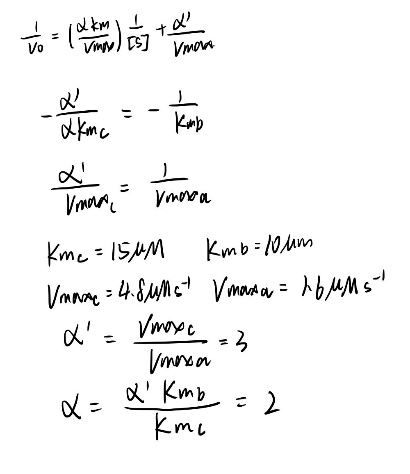 1/V₀ = (αKm/Vmax) 1/[S] + α'/Vmax
-α'/αKmc = -1/Kmb
α'/Vmaxc = 1/Vmaxa
Kmc = 15μM Kmb = 10μm
Vmaxc = 4.8μMs⁻¹ Vmaxa = 1.6μMs⁻¹
α' = Vmaxc/Vmaxa = 3
α = α' Kmb/Kmc = 2